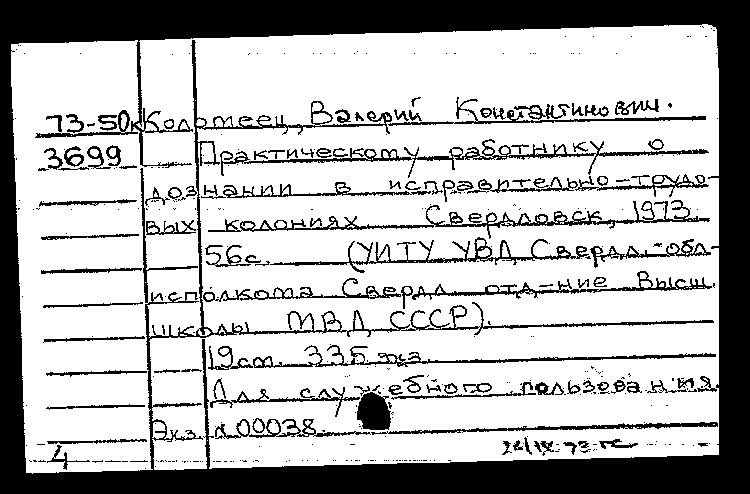 73-50к Коломеец, Валерий Константинович.
3699 Практическому работнику о
дознании в исправительно-трудо-
вых колониях Свердловск, 1973.
56с. (УИТУ УВД Свердл. обл-
исполкома Свердл. отд-ние Высш.
школы МВД СССР).
19см. 335 экз.
Для служебного пользования.
Экз. № 00038.
4